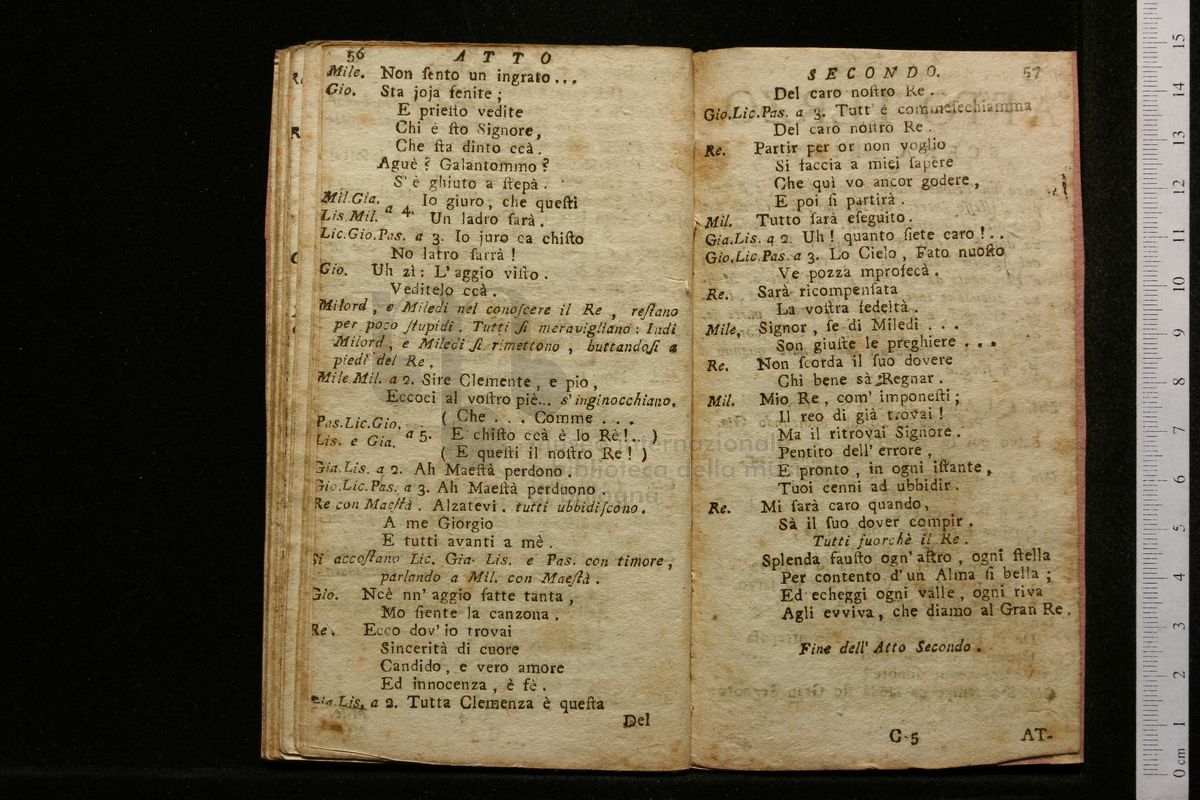 56 ATTO
Mile. Non ſento un ingrato...
Gio. Sta joja ſenite;
E prieſto vedite
Chi è ſto Signore,
Che ſta dinto ccà.
Aguè? Galantommo?
S'è ghiuto a ſtepà.
Mil.Gia. Lis.Mil. a 4. Io giuro, che queſti
Un ladro ſarà.
Lic.Gio.Pas. a 3. Io juro ca chiſto
No latro ſarrà!
Gio. Uh zì: L'aggio viſto.
Veditelo ccà.
Milord, e Miledi nel conoſcere il Re, reſtano
per poco ſtupidi. Tutti ſi meravigliano: Indi
Milord, e Miledi ſi rimettono, buttandoſi a
piedi del Re.
Mile Mil. a 2. Sire Clemente, e pio,
Eccoci al voſtro piè... s'inginocchiano.
Pas.Lic.Gio. Lis. e Gia. a 5. (Che... Comme...
E chiſto ccà è lo Rè!..)
(E queſti il noſtro Re!)
Gia.Lis. a 2. Ah Maeſtà perdono.
Gio.Lic.Pas. a 3. Ah Maeſtà perduono.
Re con Maeſtà. Alzatevi. tutti ubbidiſcono.
A me Giorgio
E tutti avanti a mè.
Si accoſtano Lic. Gia. Lis. e Pas. con timore,
parlando a Mil. con Maeſtà.
Gio. Ncè nn'aggio fatte tanta,
Mo ſiente la canzona.
Re. Ecco dov'io trovai
Sincerità di cuore
Candido, e vero amore
Ed innocenza, è fè.
Gia.Lis. a 2. Tutta Clemenza è queſta
Del
SECONDO. 57
Del caro noſtro Re.
Gio.Lic.Pas. a 3. Tutt'è commeſechiamma
Del caro noſtro Re.
Re. Partir per or non voglio
Si faccia a miei ſapere
Che quì vo ancor godere,
E poi ſi partirà.
Mil. Tutto ſarà eſeguito.
Gia.Lis. a 2. Uh! quanto ſiete caro!..
Gio.Lic.Pas. a 3. Lo Cielo, Fato nuoſto
Ve pozza improſecà.
Re. Sarà ricompenſata
La voſtra fedeltà.
Mile, Signor, ſe di Miledi...
Son giuſte le preghiere...
Re. Non ſcorda il ſuo dovere
Chi bene sà Regnar.
Mil. Mio Re, com'imponeſti;
Il reo di già trovai!
Ma il ritrovai Signore.
Pentito dell'errore,
E pronto, in ogni iſtante,
Tuoi cenni ad ubbidir.
Re. Mi ſarà caro quando,
Sà il ſuo dover compir.
Tutti fuorchè il Re.
Splenda fauſto ogn'aſtro, ogni ſtella
Per contento d'un Alma ſi bella;
Ed echeggi ogni valle, ogni riva
Agli evviva, che diamo al Gran Re.
Fine dell'Atto Secondo.
C 5 AT-